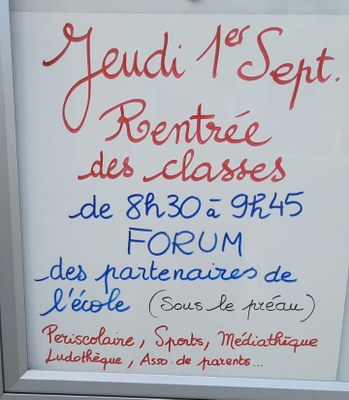 Jeudi 1er Sept.
Rentrée
des classes
de 8h30 à 9h45
FORUM
des partenaires de
l'école (sous le préau)
Periscolaire, Sports, Médiathèque
Ludothèque, Asso. de parents...